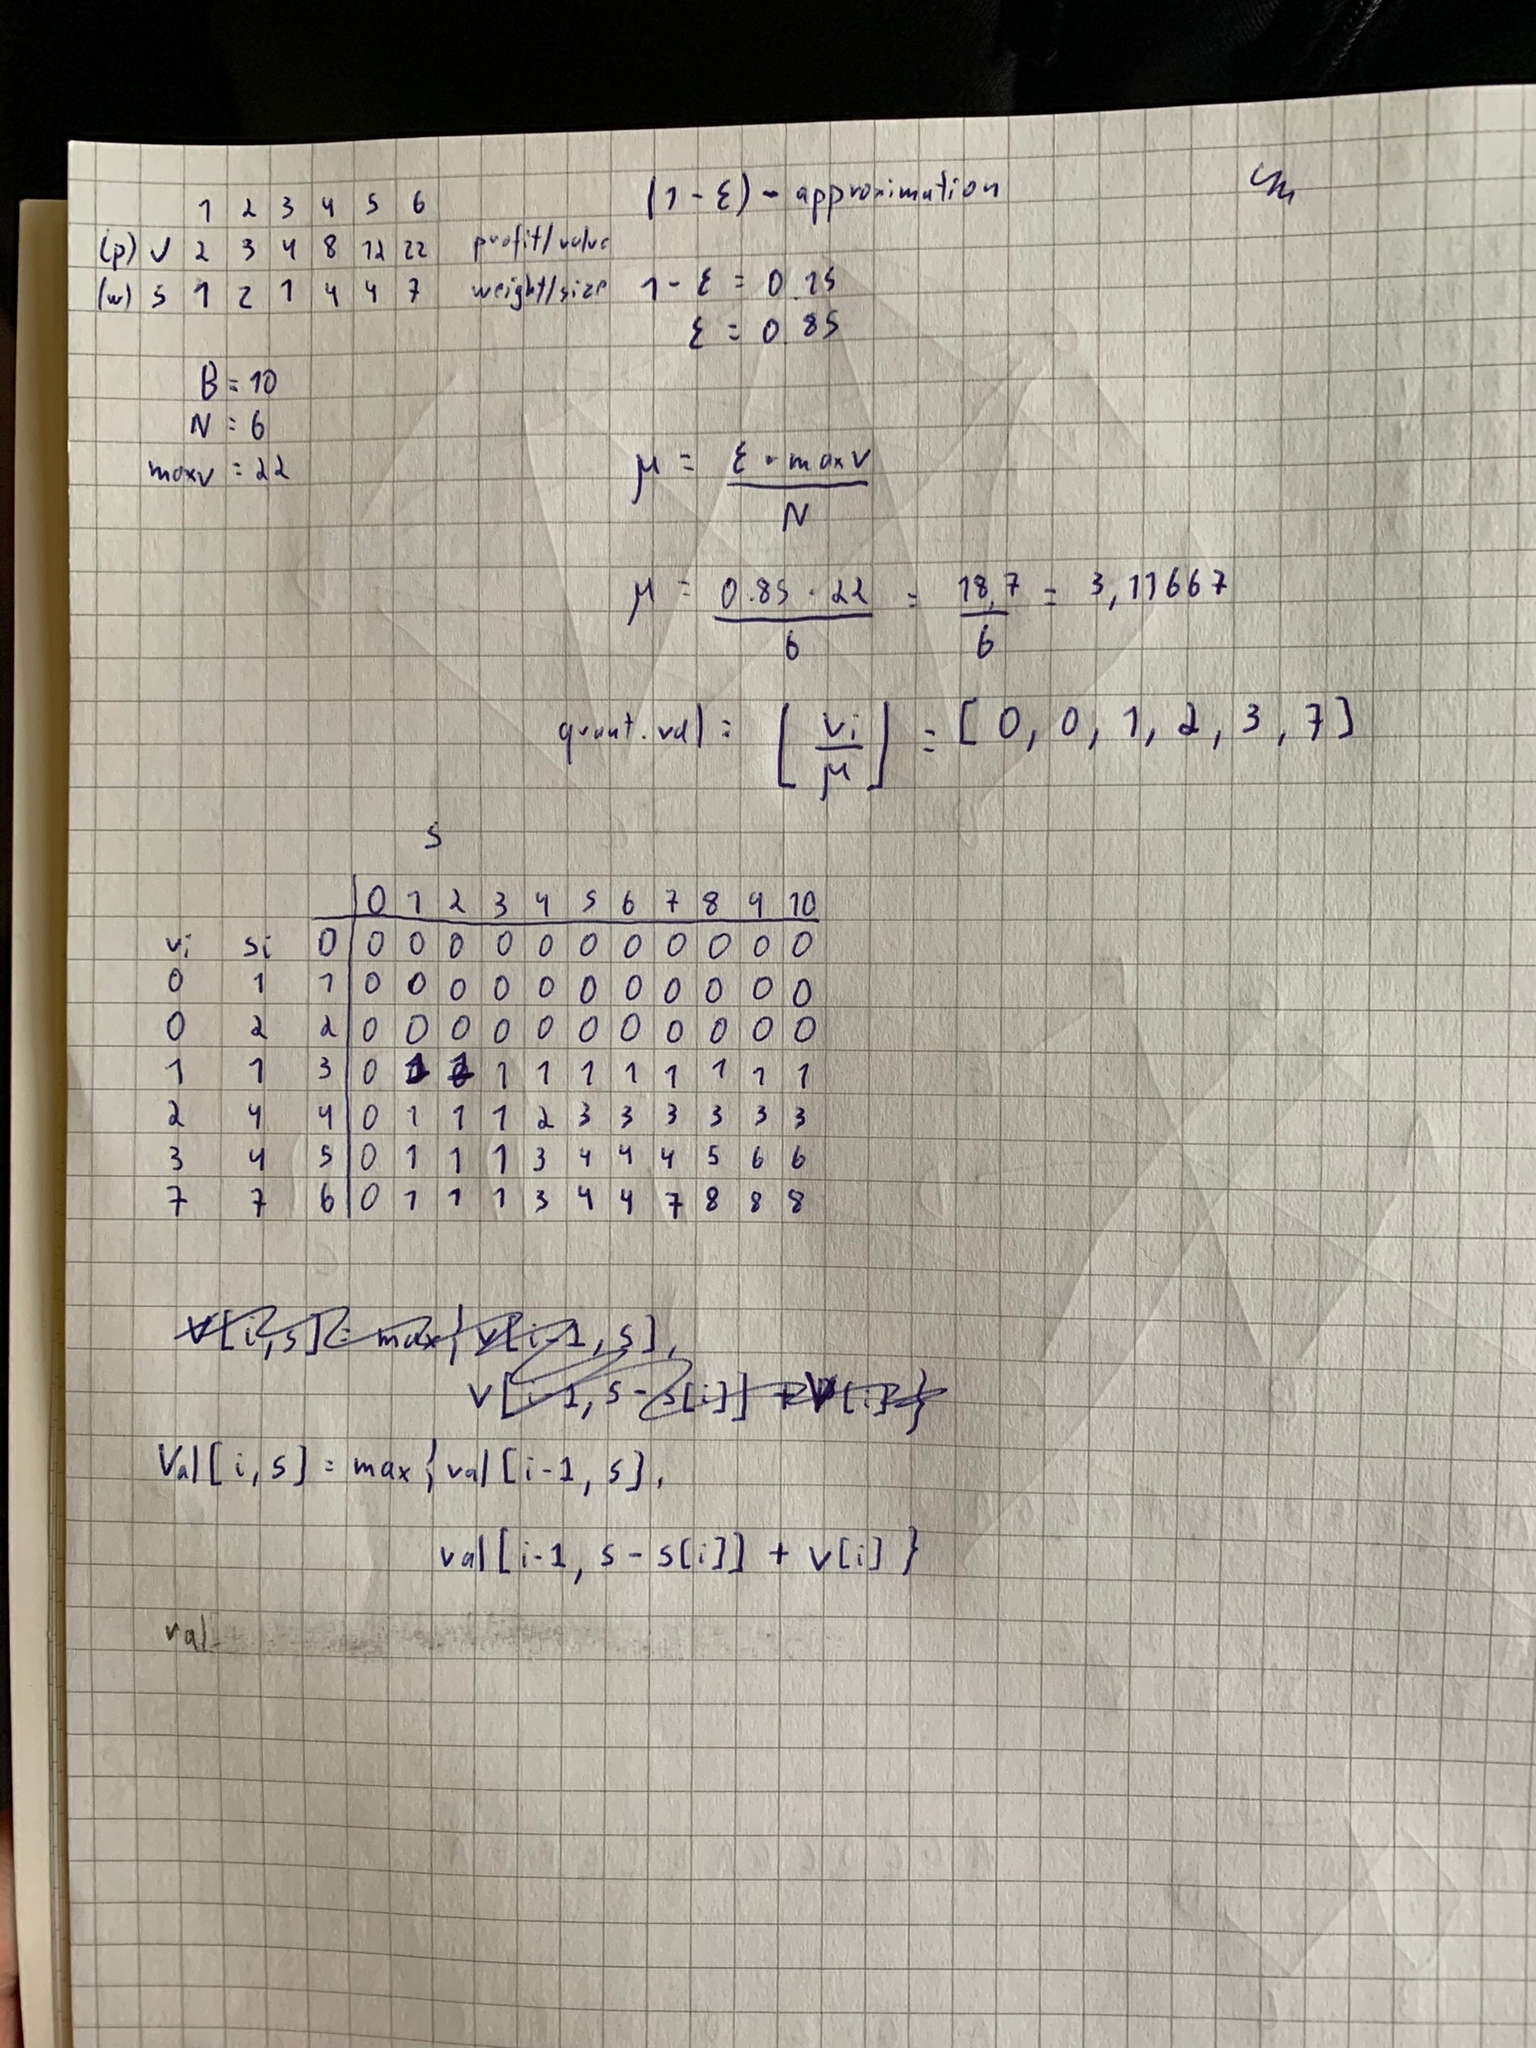 1 2 3 4 5 6
(p) v 2 3 4 8 12 22 profit/value
(w) s 1 2 1 4 4 7 weight/size
B = 10
N = 6
maxv = 22
(1 - ε) - approximation
1 - ε = 0.15
ε = 0.85
μ = ε · maxv / N
μ = 0.85 · 22 / 6 = 18,7 / 6 = 3,11667
quant.val = ⌊ vi / μ ⌋ = [ 0, 0, 1, 2, 3, 7 ]
s
0 1 2 3 4 5 6 7 8 9 10
vi si 0 0 0 0 0 0 0 0 0 0 0 0
0 1 1 0 0 0 0 0 0 0 0 0 0 0
0 2 2 0 0 0 0 0 0 0 0 0 0 0
1 1 3 0 1 1 1 1 1 1 1 1 1 1
2 4 4 0 1 1 1 2 3 3 3 3 3 3
3 4 5 0 1 1 1 3 4 4 4 5 6 6
7 7 6 0 1 1 1 3 4 4 7 8 8 8
v[i,s] = max{ v[i-1, s],
v[i-1, s - s[i]] + v[i] }
Val[i,s] = max{ val[i-1, s],
val[i-1, s - s[i]] + v[i] }
val